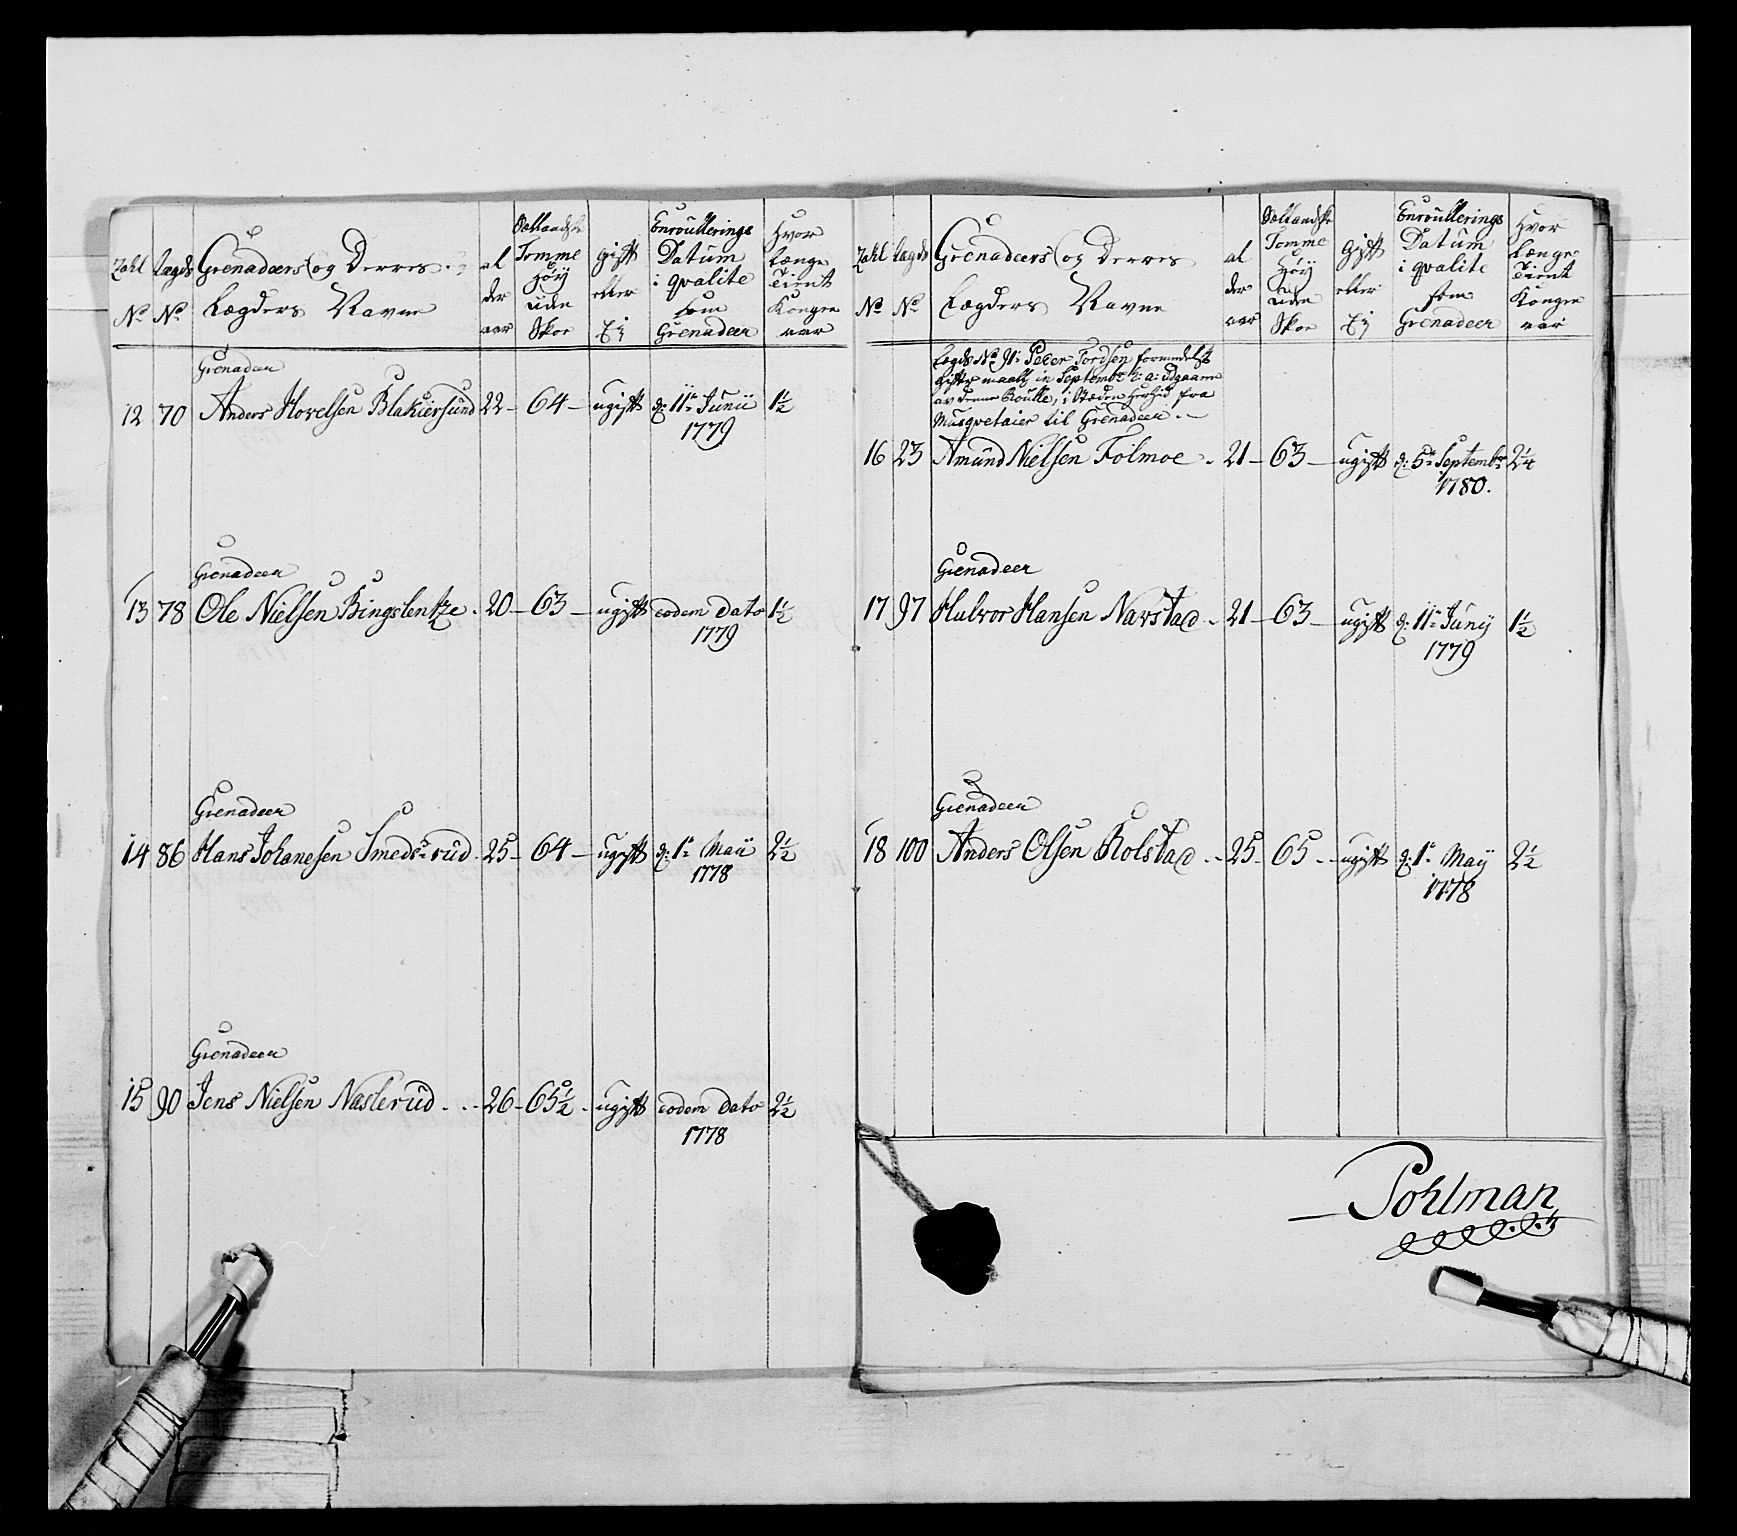 Zahl No
Lægds No
Grenadeers og Derres
Lægders Navne
al
der
aar
Sællandske
Tomme
Høy
uden
Skoe
gift
eller
Ej
Enroullerings
Datum
i qvalite
som
Grenadeer
Hvor
Længe
Tient
Kongen
aar
Grenadeer
12 70 Anders Hovelsen Blakiersund 22 - 64 - ugift d: 11te Junii 1½
1779
Grenadeer
13 78 Ole Nielsen Bingslenkze . 20 - 63 - ugift eodem Dato 1½
1779
Grenadeer
14 86 Hans Johanesen Smeds-rud . 25 - 64 - ugift d: 1te Maii 2½
1778
Grenadeer
15 90 Jens Nielsen Nasterud . . - 26 - 65½ . ugift eodem Dato 2½
1778
Zahl No
Lægds No
Grenadeers og Derres
Lægders Navne
al
der
aar
Sællandske
Tomme
Høy
uden
Skoe
Gift
eller
Ej
Enroullerings
Datum
i qvalite
som
Grenadeer
Hvor
Længe
Tient
Kongen
aar
Lægds No 91: Peder Tordsen formedelst
Giftermaall, in Septembr h: a: udgaaen
av denne Roulle, i Stæden herhid fra
Musqvetaier til Grenadeer . -
16 23 Amund Nielsen Folmoe . 21 - 63 - ugift d: 5te Septembr 2¼
1780.
Grenadeer
17 97 Halvor Hansen Navstad . . 21 - 63 - ugift d: 11te Junij 1½
1779
Grenadeer
18 100 Anders Olsen Kolstad . . 25 - 65 . - ugift d: 1te May 2½
1778
Pohlman